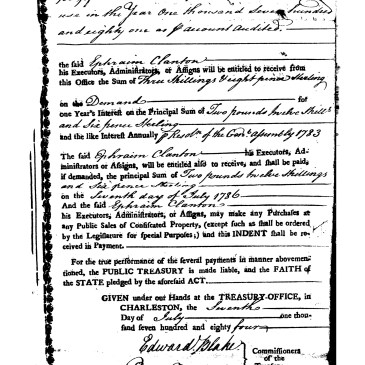 use in the Year One thousand Seven hundred
and eighty one as account audited.
the said Ephraim Clanton
his Executors, Administrators, or Assigns will be entitled to receive from
this Office the Sum of Three Shillings & eight pence Sterling
on Demand for
one Year's Interest on the Principal Sum of Two pounds twelve Shills
and Six pence Sterling
and the like Interest Annually Resoln of the Genl assembly 1783
The said Ephraim Clanton his Executors, Ad-
ministrators or Assigns, will be entitled also to receive, and shall be paid,
if demanded, the principal Sum of Two pounds twelve Shillings
and Six pence Sterling
on the Seventh day of July 1786
And the said Ephraim Clanton
his Executors, Administrators, or Assigns, may make any Purchases at
any Public Sales of Confiscated Property, (except such as shall be ordered
by the Legislature for special Purposes;) and this INDENT shall be re-
ceived in Payment.
For the true performance of the several payments in manner abovemen-
tioned, the PUBLIC TREASURY is made liable, and the FAITH of
the STATE pledged by the aforesaid ACT.
GIVEN under our Hands at the TREASURY-OFFICE, in
CHARLESTON, the Seventh
Day of July one thou-
sand seven hundred and eighty four
Edward Blake
Commissioners
of the